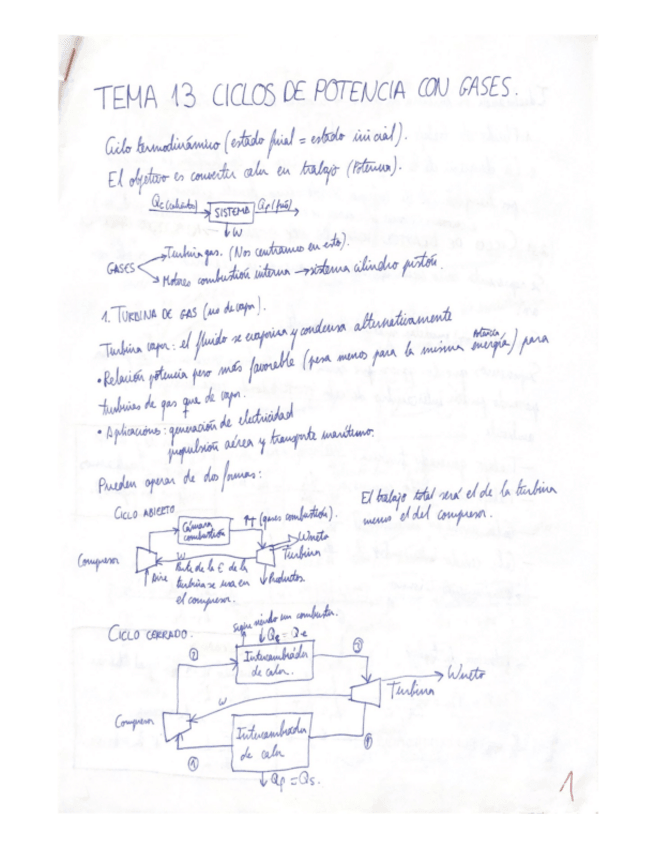 TEMA 13 CICLOS DE POTENCIA CON GASES.
Ciclo termodinámico (estado final = estado inicial).
El objetivo es convertir calor en trabajo (Potencia).
Qc (caliente) SISTEMA Qf (frío)
W
GASES
Turbina gas. (Nos centramos en esto).
Motores combustión interna → sistema cilindro pistón.
1. TURBINA DE GAS (no de vapor).
Turbina vapor: el fluido se evapora y condensa alternativamente
• Relación potencia peso más favorable (pesa menos para la misma energía) para
Potencia
turbinas de gas que de vapor.
• Aplicaciones: generación de electricidad
propulsión aérea y transporte marítimo.
Pueden operar de dos formas:
El trabajo total será el de la turbina
menos el del compresor.
CICLO ABIERTO
Cámara
combustión
(gases combustión).
Wneto
Compresor
W
Turbina
Aire
Parte de la E de la
turbina se usa en
el compresor.
Productos.
CICLO CERRADO.
Sigue siendo un combustor.
Intercambiador
de calor.
2
3
Wneto
Turbina
W
Compresor
Intercambiador
de calor
1
4
Qf = Qs.
1